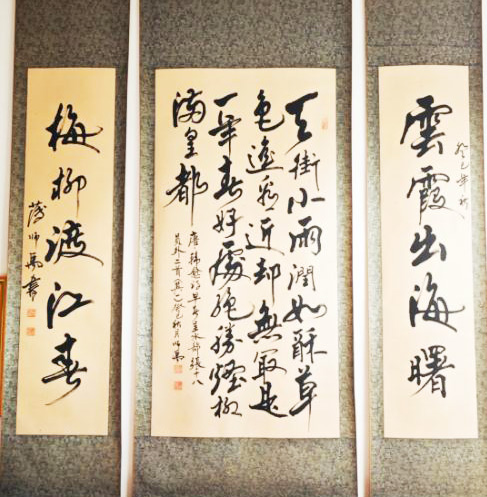 雲霞出海曙
癸巳年秋
天街小雨潤如酥草
色遥看近却無最是
一年春好處絕勝煙柳
滿皇都
唐韓愈詩早春呈水部張十八
員外二首其一癸巳秋月师
梅柳渡江春
师書